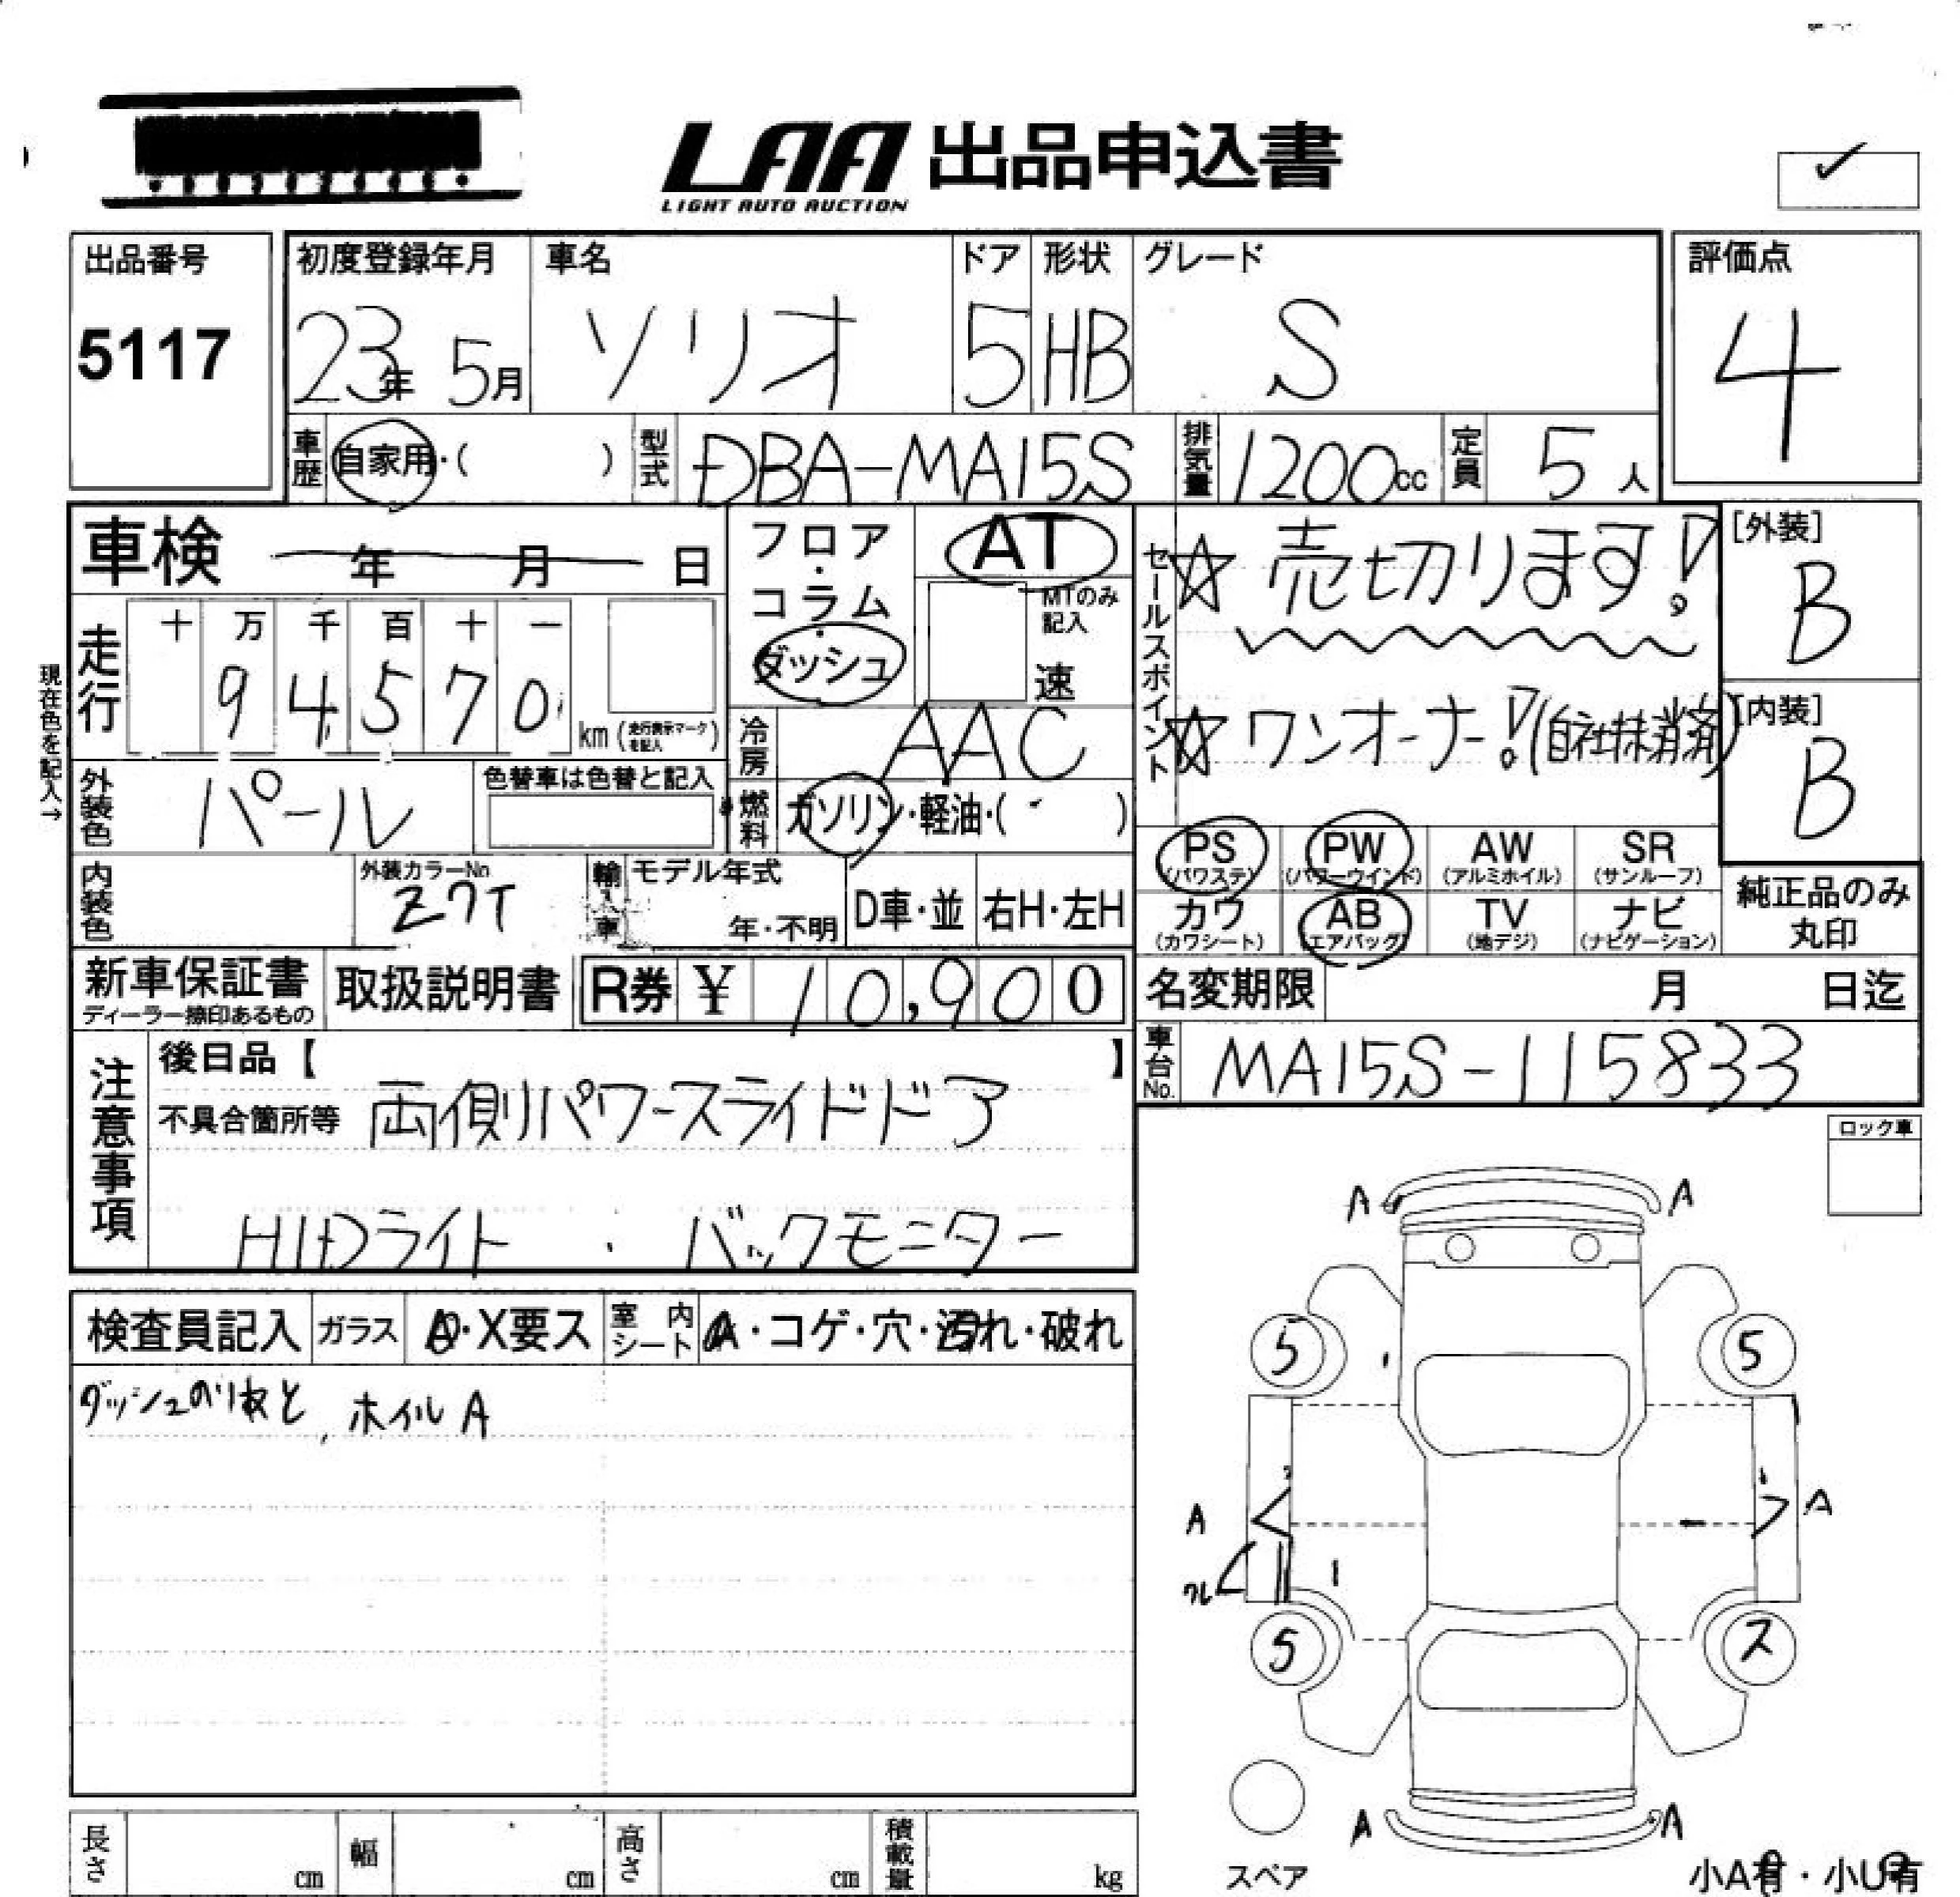 LAA 出品申込書
LIGHT AUTO AUCTION
出品番号
5117
初度登録年月
23年 5月
車名
ソリオ
ドア
5
形状
HB
グレード
S
評価点
4
車歴
自家用・( )
型式
DBA-MA15S
排気量
1200cc
定員
5人
車検 年 月 日
フロア・コラム・ダッシュ
AT
MTのみ記入
速
セールスポイント
☆売切ります!
☆ワンオーナー!(自社抹消済)
[外装]
B
[内装]
B
現在色を記入→
走行
十 万 千 百 十 一
9 4 5 7 0
km(走行表示マークを記入)
冷房
AAC
外装色
パール
色替車は色替と記入
燃料
ガソリン・軽油・( )
PS (パワステ)
PW (パワーウインド)
AW (アルミホイル)
SR (サンルーフ)
カワ (カワシート)
AB (エアバッグ)
TV (地デジ)
ナビ (ナビゲーション)
純正品のみ丸印
内装色
外装カラーNo
Z7T
輸入車
モデル年式
年・不明
D車・並
右H・左H
新車保証書
ディーラー捺印あるもの
取扱説明書
R券 ¥ 10,900
名変期限 月 日迄
車台No.
MA15S-115833
注意事項
後日品【 】
不具合箇所等 両側パワースライドドア
HIDライト ・ バックモニター
ロック車
検査員記入
ガラス
A・X要ス
室内シート
A・コゲ・穴・汚れ・破れ
ダッシュのりあと, ホイルA
A A
5 5
A A
ワレ
5 ス
A A
スペア
小A有・小U有
長さ cm
幅 cm
高さ cm
積載量 kg